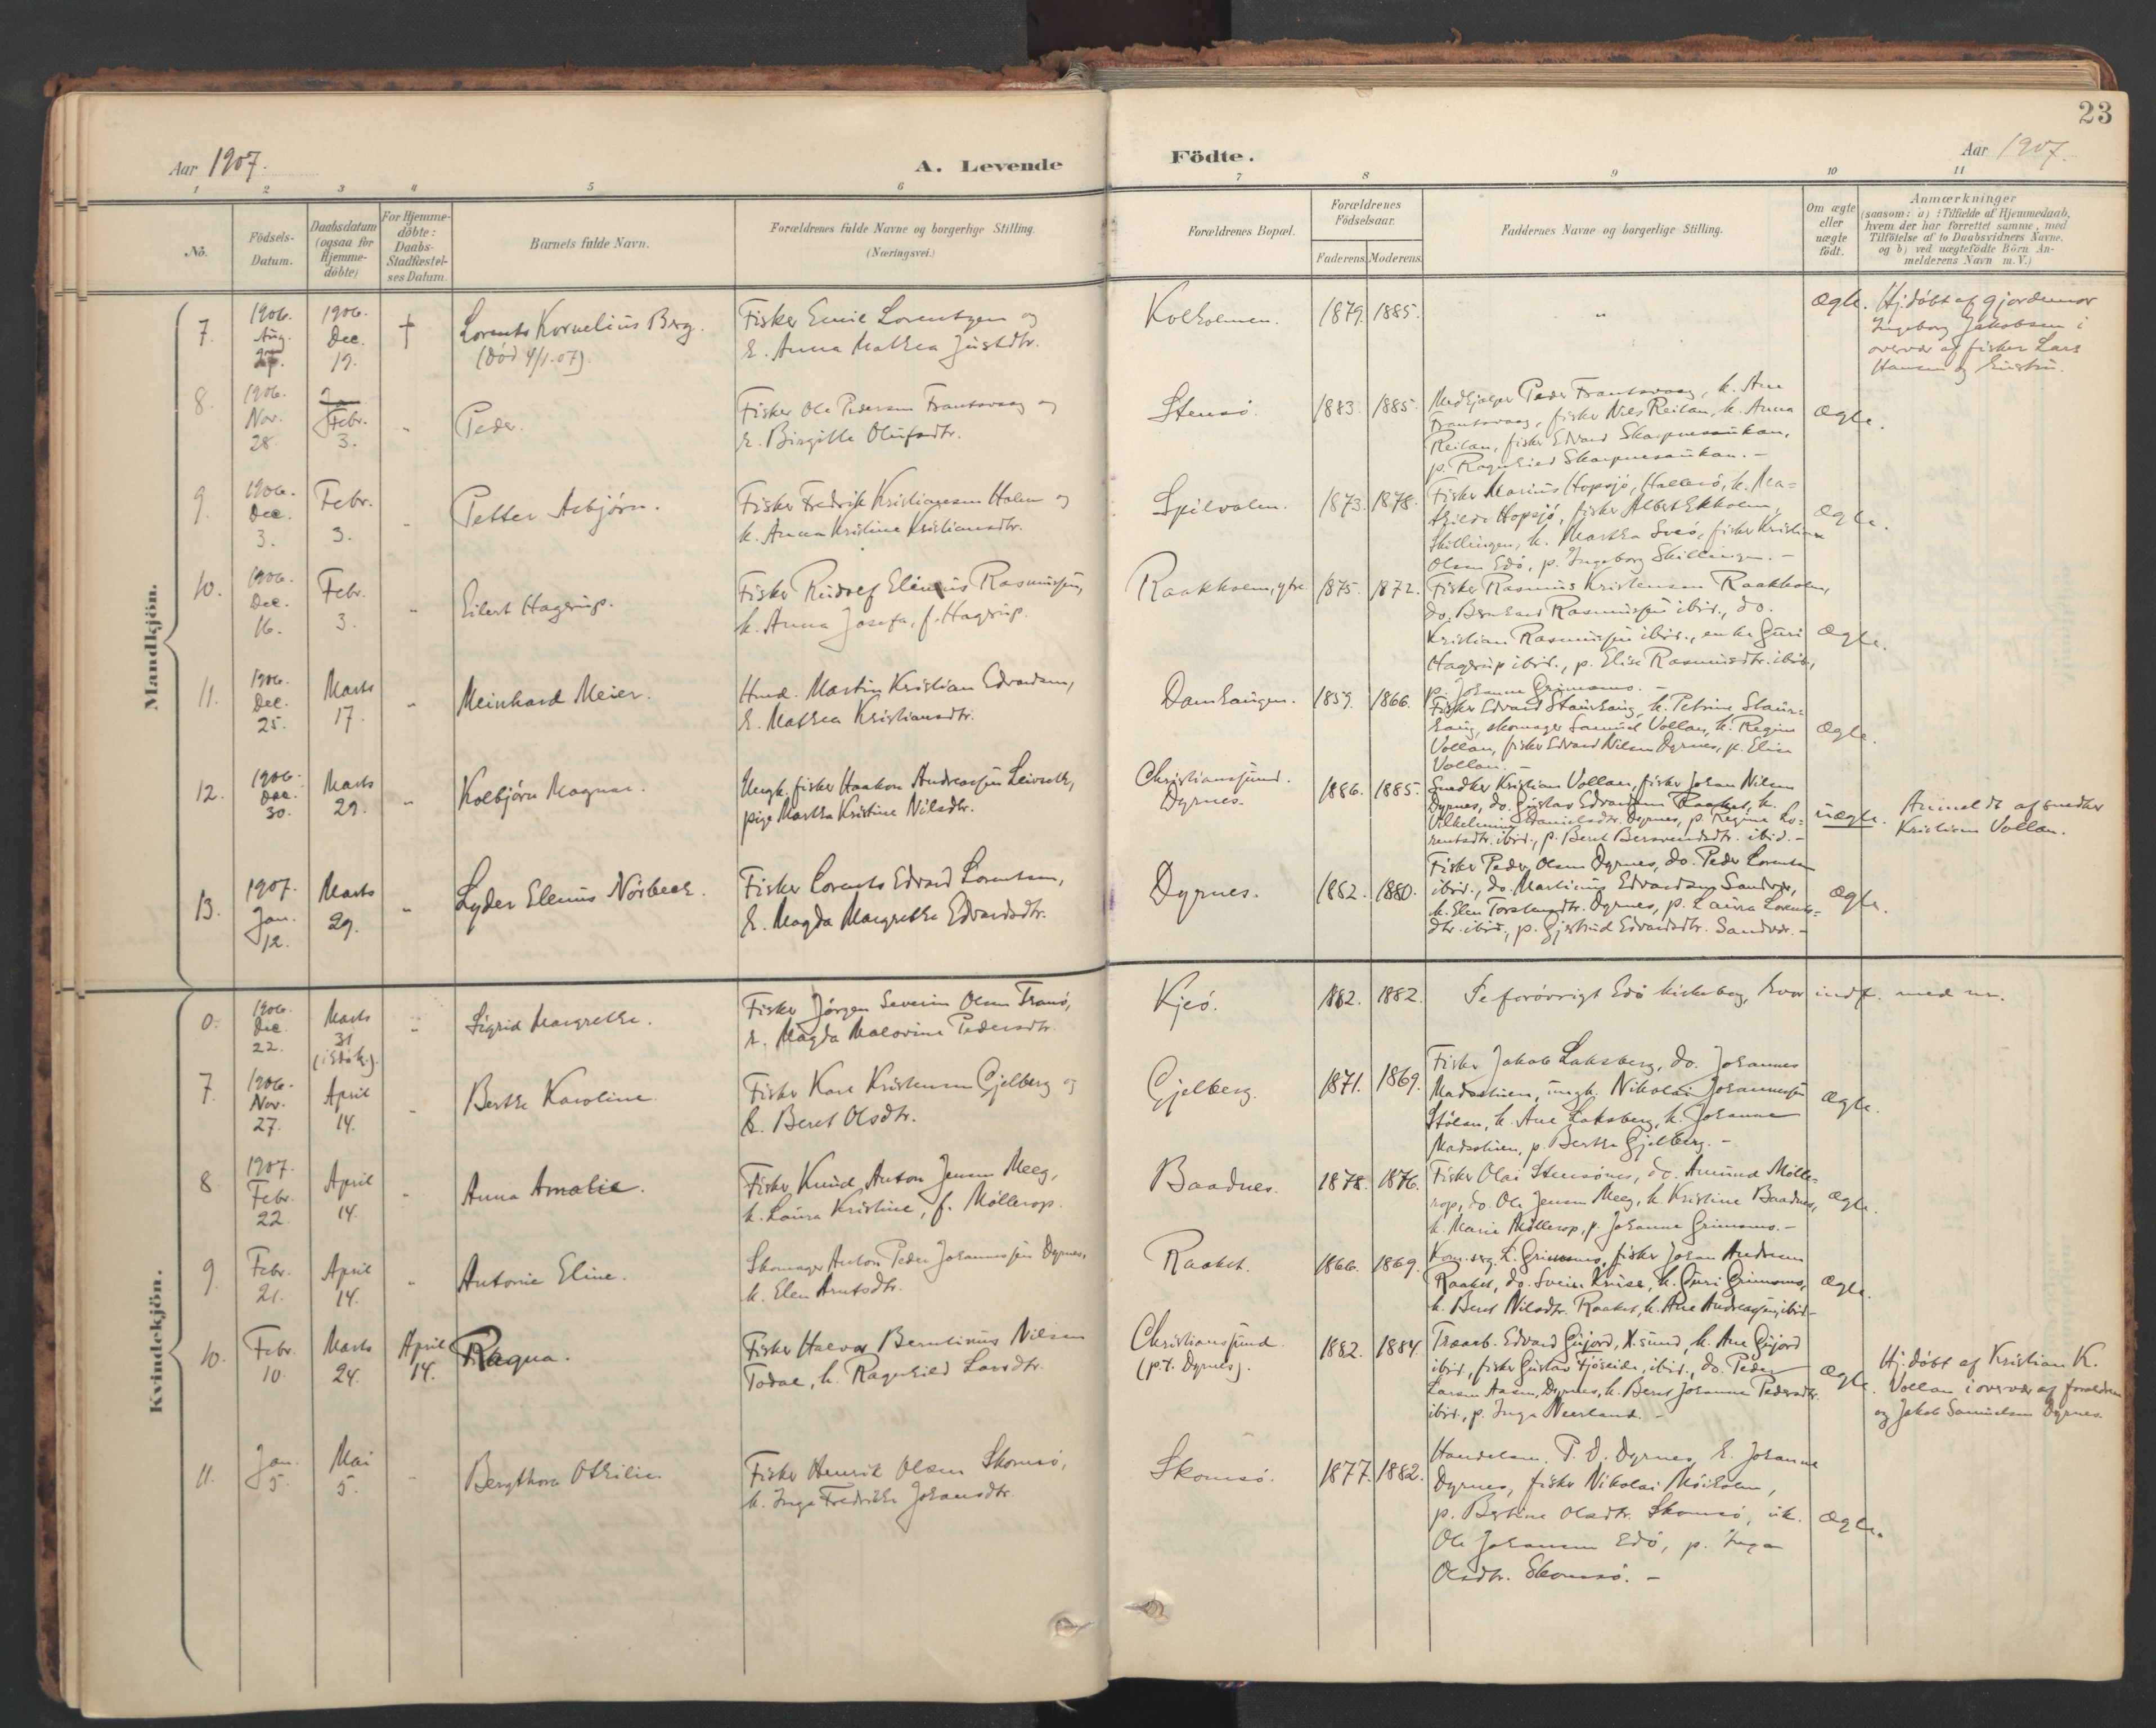 23
Aar 1907.
A. Levende
Födte.
Aar 1907.
1 2 3 4 5 6 7 8 9 10 11
No.
Födsels-
Datum.
Daabsdatum
(ogsaa for
Hjemme-
döbte)
For Hjemme-
döbte:
Daabs-
Stadfæstel-
ses Datum.
Barnets fulde Navn.
Forældrenes fulde Navne og borgerlige Stilling.
(Næringsvei.)
Forældrenes Bopæl.
Forældrenes
Födselsaar.
Faderens. Moderens.
Faddernes Navne og borgerlige Stilling.
Om ægte
eller
uægte
födt.
Anmærkninger
(saasom: a) : Tilfælde af Hjemmedaab,
hvem der har forrettet samme, med
Tilföielse af to Daabsvidners Navne.
og b) ved uægtefödte Börn An-
melderens Navn m. V.)
Mandkjön.
7.
1906.
Aug.
1906.
Dec.
19.
†
Lorents Kornelius Berg.
(Död 4/1.07).
Fisker Emil Lorentzen og
k. Anna Mathea Justdtr.
Kolholmen.
1879. 1885.
"
Ægte.
Hj.döbt af gjordemor
Ingeborg Jakobsen i
overvær af fisker Lars
Hansen og hustru.
8.
1906.
Nov.
28.
Febr.
3.
"
Peder.
Fisker Ole Pedersen Frantsvaag og
k. Birgitte Olufsdtr.
Stensö.
1883. 1885.
Medhjælper Peder Frantsvaag, k. Ane
Frantsvaag, fisker Nils Reitan, k. Anna
Reitan, fisker Edvard Skarpnesaukan,
p. Ragnhild Skarpnesaukan. -
Ægte.
9.
1906.
Dec.
3.
Febr.
3.
"
Petter Asbjörn.
Fisker Fredrik Kristiansen Holm og
k. Anna Kristine Kristiansdtr.
Spilvolen.
1873. 1878.
Fisker Marius Hopsjö, k. Ma=
thilde Hopsjö, fisker Albert Ekholm,
Skillingen, k. Martha Sveö, fisker Kristian
Olsen Edö, p. Ingeborg Skillingen. -
Ægte.
10.
1906.
Dec.
16.
Febr.
3.
"
Eilert Hagerup.
Fisker Rudolf Elenius Rasmussen,
k. Anna Josefa, f. Hagerup.
Raakholm, ytre.
1875. 1872.
Fisker Rasmus Kristensen Raakholm,
do. Bernhard Rasmussen ibid., do.
Kristian Rasmussen ibid., enke Guri
Hagerup ibid., p. Elise Rasmusdtr. ibid.,
p. Johanne Grimsmo. -
Ægte.
11.
1906.
Dec.
25.
Marts
17.
"
Meinhard Meier.
Hmd. Martin Kristian Edvardsen,
k. Mathea Kristiansdtr.
Damhaugen.
1859. 1866.
Fisker Edvard Staurhaug, k. Petrine Staur=
haug, skomager Samuel Vollan, k. Regine
Vollan, fisker Edvard Nilsen Dyrnes, p. Elise
Vollan. -
Ægte.
12.
1906.
Dec.
30.
Marts
29.
"
Kolbjörn Magnar.
Ungk. fisker Haakon Andreassen Leirvik,
pige Martha Kristine Nilsdtr.
Christianssund.
Dyrnes.
1886. 1885.
Snedker Kristian Vollan, fisker Johan Nilsen
Dyrnes, do. Gustav Edvardsen Raaket, k.
Vilhelmine Danielsdtr. Dyrnes, p. Regine Lo=
rentsdtr. ibid., p. Beret Bersvendsdtr. ibid. -
uægte.
Anmeldt af snedker
Kristian Vollan.
13.
1907.
Jan.
12.
Marts
29.
"
Lyder Elenus Norbeck.
Fisker Lorents Edvard Lorentsen,
k. Magda Margrethe Edvardsdtr.
Dyrnes.
1882. 1880.
Fisker Peder Olsen Dyrnes, do. Peder Lorentsen
ibid., do. Martinus Edvardsen Sandvær,
k. Elen Torstensdtr. Dyrnes, p. Laura Lorents=
dtr. ibid., p. Gjertrud Edvardsdtr. Sandvær. -
Ægte.
Kvindekjön.
0.
1906.
Dec.
22.
Marts
31
(i Edö k.).
"
Sigrid Margrethe.
Fisker Jörgen Severin Olsen Tranö,
k. Magda Malovine Pedersdtr.
Kjeö.
1882. 1882.
Se forövrigt Edö kirkebog, hvor indf. med nr.
7.
1906.
Nov.
27.
April
14.
"
Berthe Karoline.
Fisker Karl Kristensen Gjelberg og
k. Beret Olsdtr.
Gjelberg.
1871. 1869.
Fisker Jakob Laksberg, do. Johannes
Madsstuen, ungk. Nikolai Johannessen
Stölen, k. Ane Laksberg, k. Johanne
Madsstuen, p. Berthe Gjelberg. -
Ægte.
8.
1907.
Febr.
22.
April
14.
"
Anna Amalie.
Fisker Knud Anton Jensen Meeg,
k. Laura Kristine, f. Möllerop.
Baadnes.
1878. 1876.
Fisker Olai Stensönes, do. Amund Mölle-
rop, do. Ole Jensen Meeg, k. Kristine Baadnes,
k. Marie Möllerop, p. Johanne Grimsmo. -
Ægte.
9.
Febr.
21.
April
14.
"
Antonie Eline.
Skomager Anton Peder Johannessen Dyrnes,
k. Elen Arntsdtr.
Raaket.
1866. 1869.
Kirkesg. L. Grimsmo, fisker Johan Andresen
Raaket, do. Svein Kruse, k. Guri Grimsmo,
k. Beret Nilsdtr. Raaket, k. Ane Andreassen ibid. -
Ægte.
10.
Febr.
10.
Marts
24.
April
14.
Ragna.
Fisker Halvor Berntinus Nilsen
Todal, k. Ragnhild Larsdtr.
Christianssund
(p.t. Dyrnes).
1882. 1884.
Træarb. Edvard Gujord, X.sund, k. Ane Gujord
ibid., fisker Gustav Fjöseide, ibid., do. Peder
Larsen Aasen, Dyrnes, k. Beret Johanna Pedersdtr.
ibid., p. Inga Neerland. -
Ægte.
Hj.döbt af Kristian K.
Vollan i overvær af forældrene
og Jakob Samuelsen Dyrnes.
11.
Jan.
5.
Mai
5.
"
Bergthora Othilie.
Fisker Henrik Olsen Skomsö,
k. Inga Fredrikke Johansdtr.
Skomsö.
1877. 1882.
Handelsm. P. O. Dyrnes, k. Johanne
Dyrnes, fisker Nikolai Möiholm,
p. Bertine Olsdtr. Skomsö, uk.
Ole Johansen Edö, p. Inga
Olsdtr. Skomsö. -
Ægte.